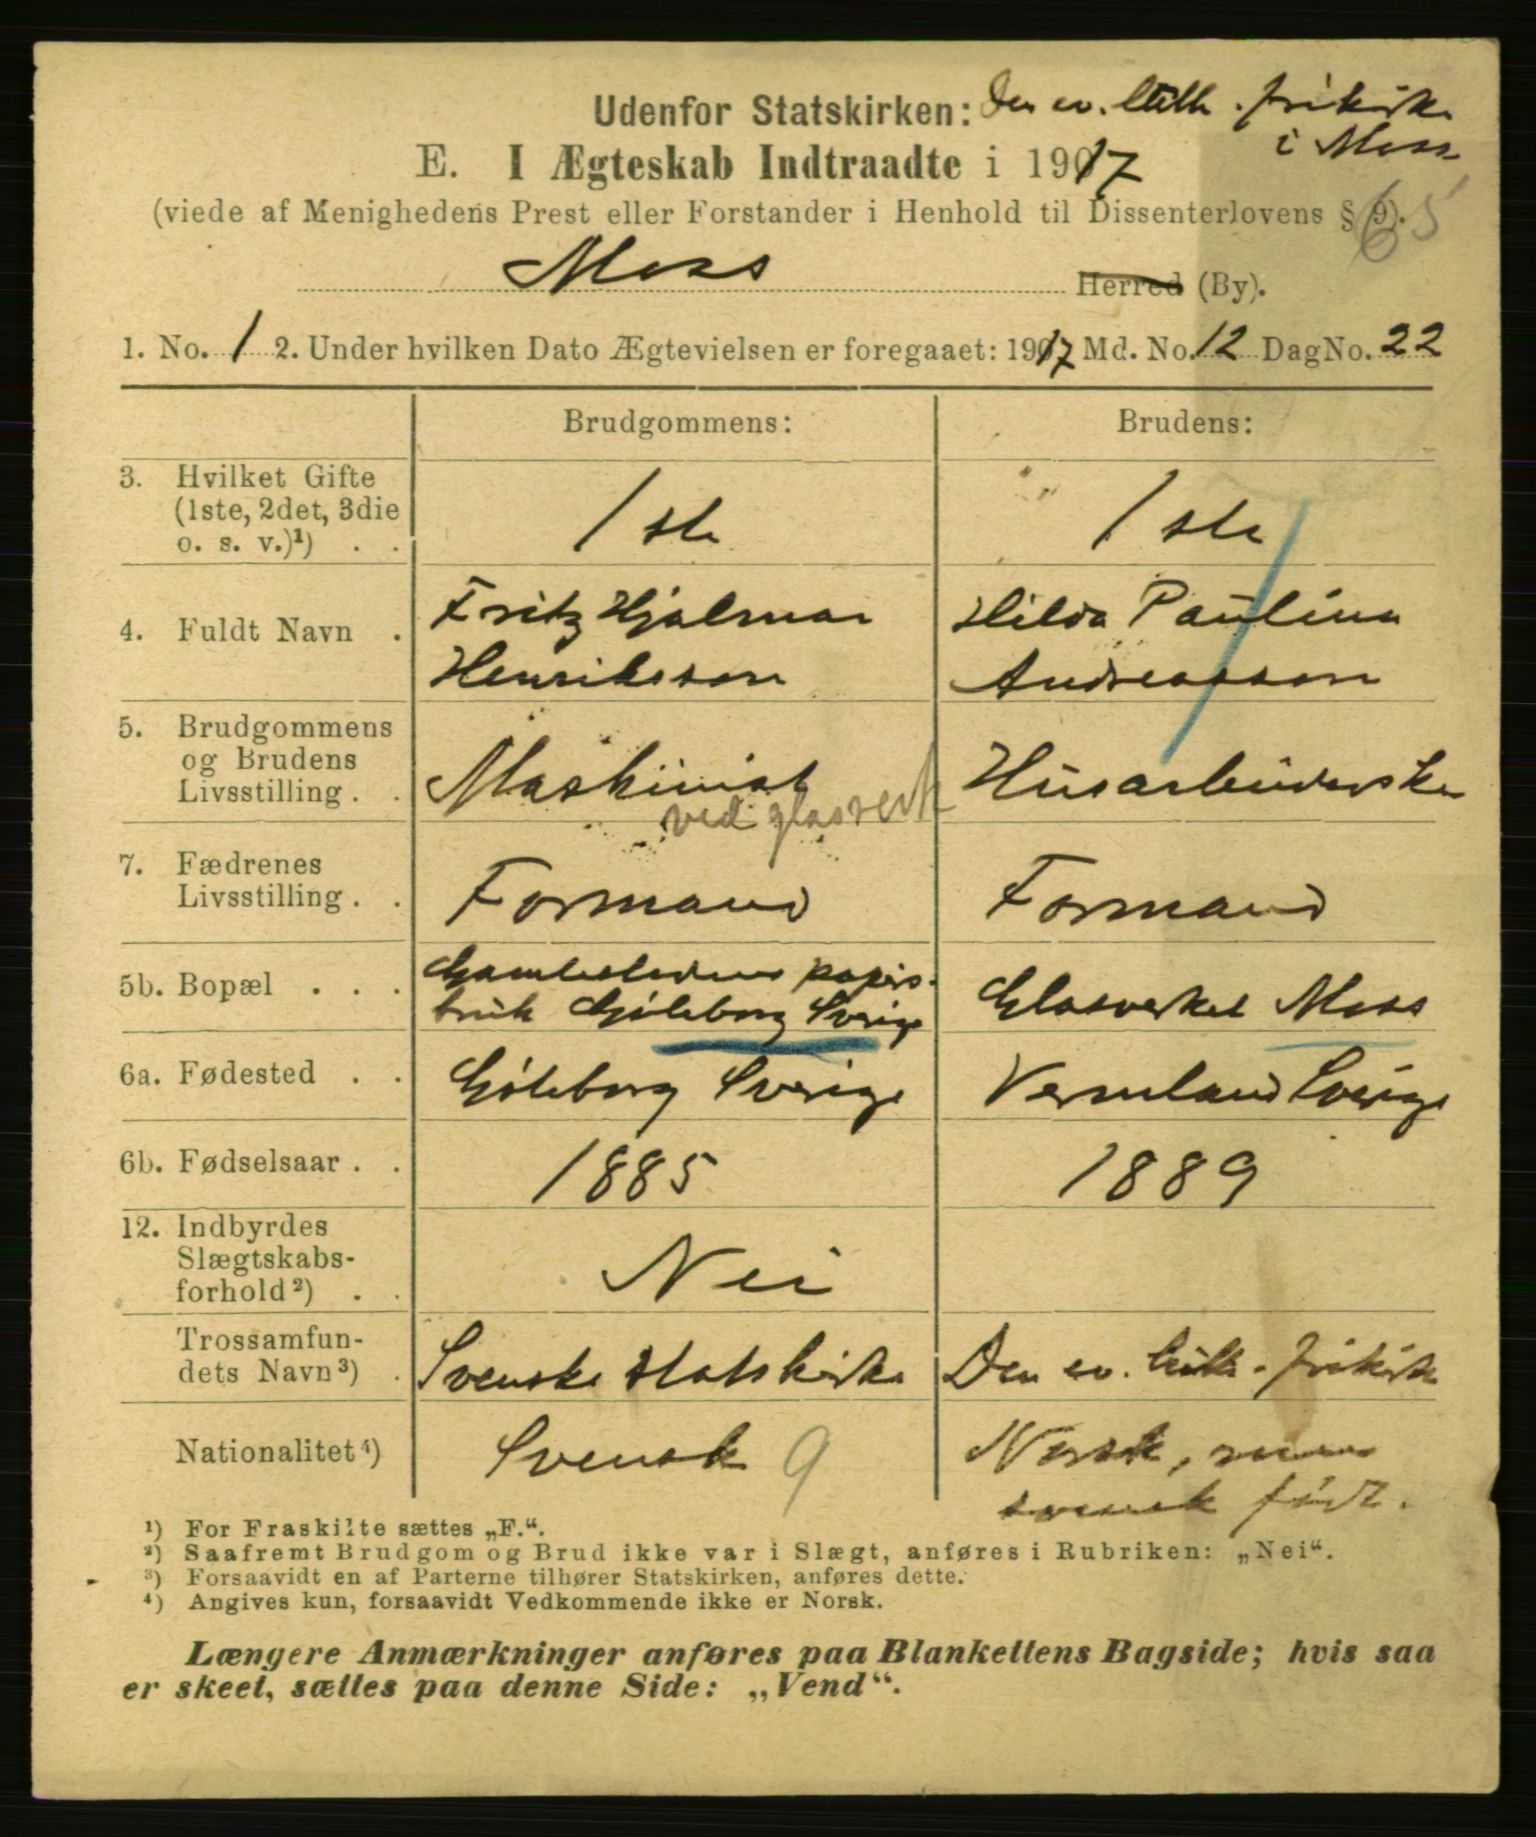 Udenfor Statskirken: Den ev. luth. frikirke
i Moss
E. I Ægteskab Indtraadte i 1917
65
(viede af Menighedens Prest eller Forstander i Henhold til Dissenterlovens § 9).
Moss Herred (By).
1. No. 1 2. Under hvilken Dato Ægtevielsen er foregaaet: 1917 Md. No. 12 Dag No. 22
Brudgommens: Brudens:
3. Hvilket Gifte
(1ste, 2det, 3die
o. s. v.)¹) . . 1ste 1ste
4. Fuldt Navn . Fritz Hjalmar Hilda Paulina
Henriksson Andreasson
5. Brudgommens
og Brudens
Livsstilling . . Maskinist Husarbeiderske
ved glasverk
7. Fædrenes
Livsstilling . . Formand Formand
5b. Bopæl . . . Gamlestadens papirs-
bruk Göteborg Sverige Glasverket Moss
6a. Fødested . . Göteborg Sverige Vermland Sverige
6b. Fødselsaar . . 1885 1889
12. Indbyrdes
Slægtskabs-
forhold²) . . Nei
Trossamfun-
dets Navn³) . Svenske statskirke Den ev. luth. frikirke
Nationalitet⁴) Svensk 9 Norsk, men
svensk født.
¹) For Fraskilte sættes „F.“.
²) Saafremt Brudgom og Brud ikke var i Slægt, anføres i Rubriken: „Nei“.
³) Forsaavidt en af Parterne tilhører Statskirken, anføres dette.
⁴) Angives kun, forsaavidt Vedkommende ikke er Norsk.
Længere Anmærkninger anføres paa Blankettens Bagside; hvis saa
er skeet, sættes paa denne Side: „Vend“.